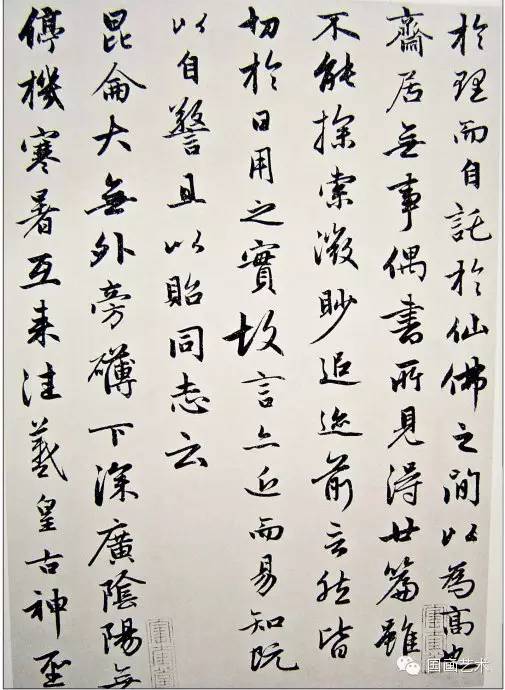 於理而自託於仙佛之間以為高也
齋居無事偶書所見得廿篇雖
不能探索微眇追迹前言然皆
切於日用之實故言亦近而易知既
以自警且以貽同志云
昆侖大無外旁礴下深廣陰陽無
停機寒暑互来往羲皇古神聖
国画艺术